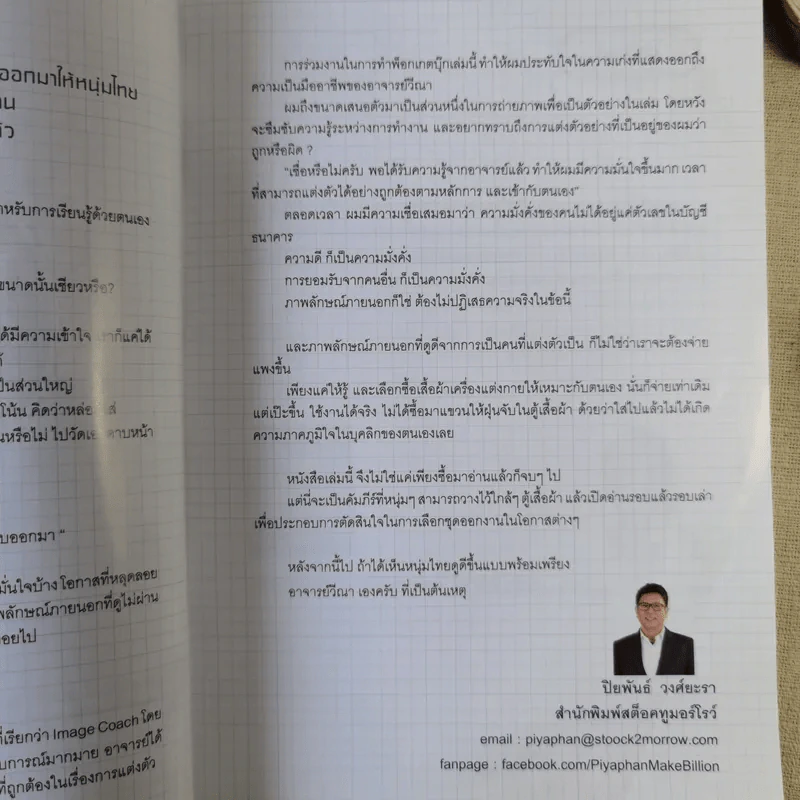 ออกมาให้หนุ่มไทย
หรับการเรียนรู้ด้วยตนเอง
ขนาดนั้นเชียวหรือ?
ด้มีความเข้าใจ
ก็แค่ได้
ป็นส่วนใหญ่
โน้น คิดว่าหล่อ
นหรือไม่ ไปวัด
าบหน้า
บออกมา "
มั่นใจบ้าง โอกาสที่หลุดลอย
พลักษณ์ภายนอกที่ดูไม่ผ่าน
อยไป
ที่เรียกว่า Image Coach โดย
บการณ์มากมาย อาจารย์ได้
ที่ถูกต้องในเรื่องการแต่งตัว
การร่วมงานในการทำพ็อกเกตบุ๊กเล่มนี้ ทำให้ผมประทับใจในความเก่งที่แสดงออกถึง
ความเป็นมืออาชีพของอาจารย์วีณา
ผมถึงขนาดเสนอตัวมาเป็นส่วนหนึ่งในการถ่ายภาพเพื่อเป็นตัวอย่างในเล่ม โดยหวัง
จะซึมซับความรู้ระหว่างการทำงาน และอยากทราบถึงการแต่งตัวอย่างที่เป็นอยู่ของผมว่า
ถูกหรือผิด ?
"เชื่อหรือไม่ครับ พอได้รับความรู้จากอาจารย์แล้ว ทำให้ผมมีความมั่นใจขึ้นมาก เวลา
ที่สามารถแต่งตัวได้อย่างถูกต้องตามหลักการ และเข้ากับตนเอง"
ตลอดเวลา ผมมีความเชื่อเสมอมาว่า ความมั่งคั่งของคนไม่ได้อยู่แค่ตัวเลขในบัญชี
ธนาคาร
ความดี ก็เป็นความมั่งคั่ง
การยอมรับจากคนอื่น ก็เป็นความมั่งคั่ง
ภาพลักษณ์ภายนอกก็ใช่ ต้องไม่ปฏิเสธความจริงในข้อนี้
และภาพลักษณ์ภายนอกที่ดูดีจากการเป็นคนที่แต่งตัวเป็น ก็ไม่ใช่ว่าเราจะต้องจ่าย
แพงขึ้น
เพียงแค่ให้รู้ และเลือกซื้อเสื้อผ้าเครื่องแต่งกายให้เหมาะกับตนเอง นั่นก็จ่ายเท่าเดิม
แต่เป๊ะขึ้น ใช้งานได้จริง ไม่ได้ซื้อมาแขวนให้ฝุ่นจับในตู้เสื้อผ้า ด้วยว่าใส่ไปแล้วไม่ได้เกิด
ความภาคภูมิใจในบุคลิกของตนเองเลย
หนังสือเล่มนี้ จึงไม่ใช่แค่เพียงซื้อมาอ่านแล้วก็จบๆ ไป
แต่นี่จะเป็นคัมภีร์ที่หนุ่มๆ สามารถวางไว้ใกล้ๆ ตู้เสื้อผ้า แล้วเปิดอ่านรอบแล้วรอบเล่า
เพื่อประกอบการตัดสินใจในการเลือกชุดออกงานในโอกาสต่างๆ
หลังจากนี้ไป ถ้าได้เห็นหนุ่มไทยดูดีขึ้นแบบพร้อมเพรียง
อาจารย์วีณา เองครับ ที่เป็นต้นเหตุ
ปิยพันธ์ วงศ์ยะรา
สำนักพิมพ์สต็อคทูมอร์โรว์
email : piyaphan@stoock2morrow.com
fanpage : facebook.com/PiyaphanMakeBillion